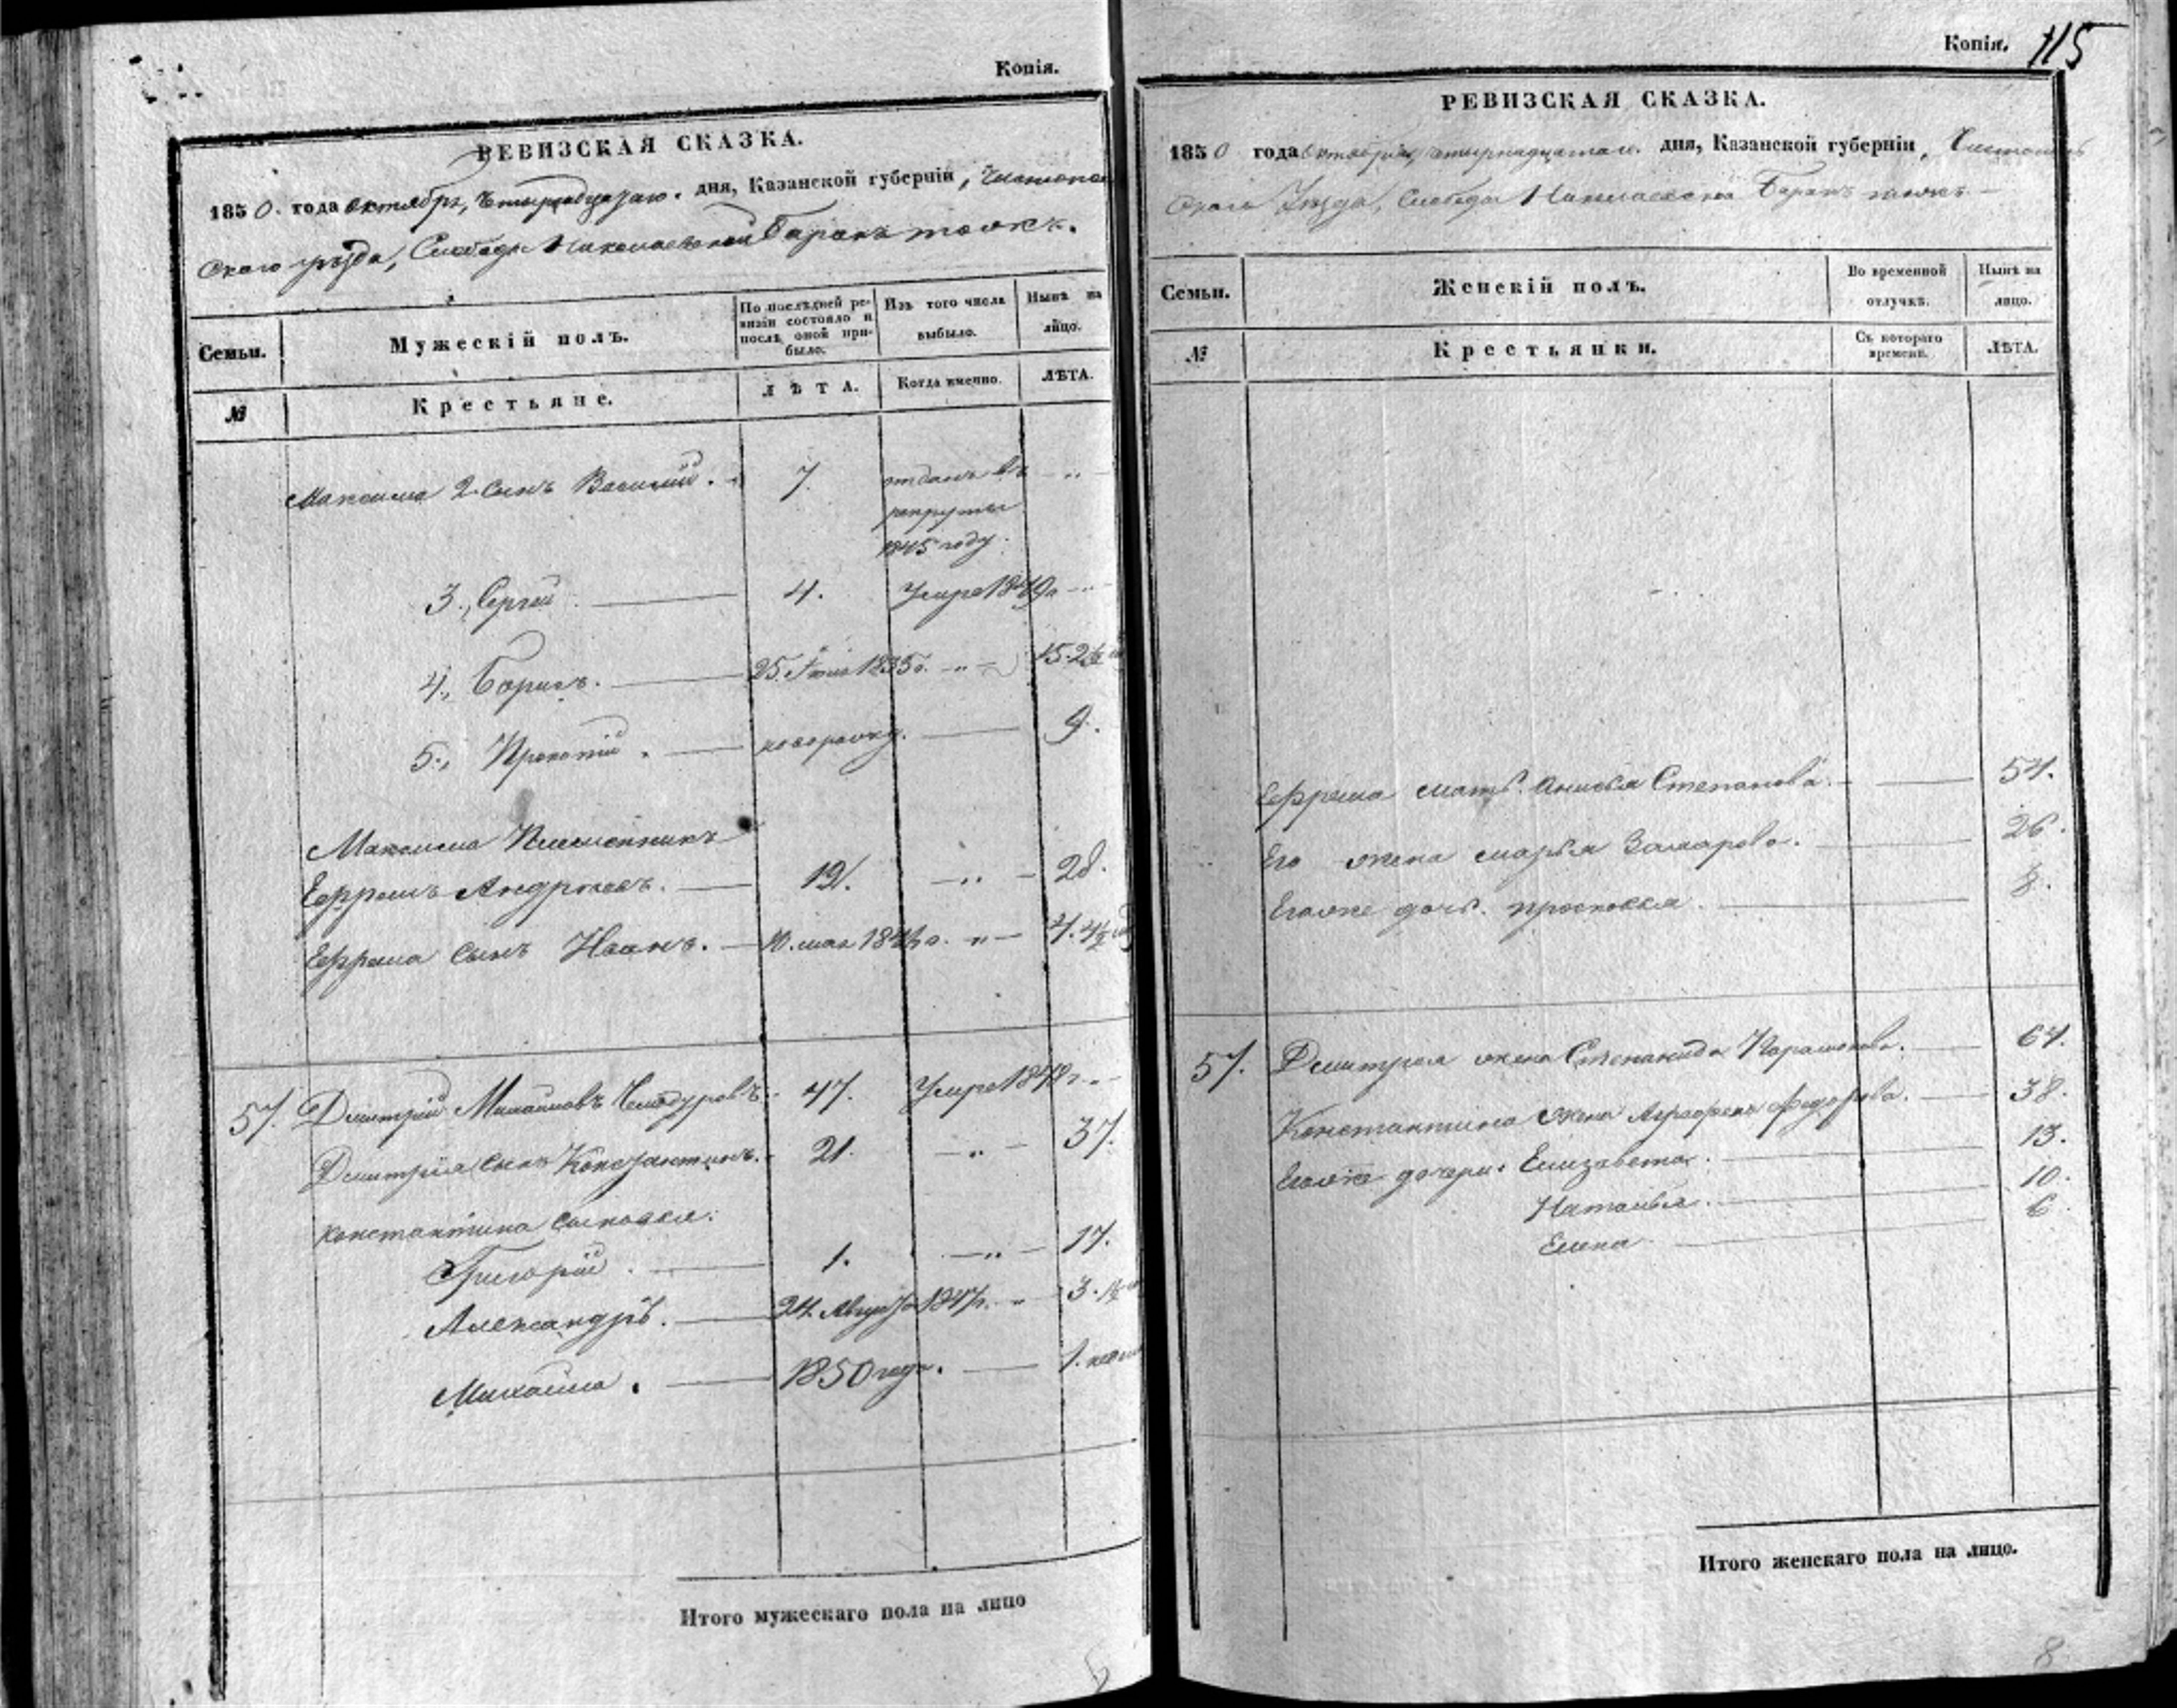 Копія.
РЕВИЗСКАЯ СКАЗКА.
1850. года октября, четырнадцатаго. дня, Казанской губерніи, Чистополь
скаго уѣзда, Слободы Николаевской Баранъ тожъ.
Семьи.
Мужескій полъ.
По послѣдней ре-
визіи состояло и
послѣ оной при-
было.
Изъ того числа
выбыло.
Нынѣ на
лицо.
№
Крестьяне.
ЛѢТА.
Когда именно.
ЛѢТА.
Максима 2 сынъ Василій. 7. отданъ въ
рекруты
1845 году.
3., Сергѣй. 4. Умре 1849го
4., Борисъ. 25. Іюля 1835го. 15.
5., Прокопій. 9.
Максима Племянникъ
Ефремъ Андреевъ. 12. 28.
Ефрема сынъ Иванъ. 10. мая 4.
57. Дмитрій Михайловъ 47. Умре
Дмитрія сынъ Константинъ. 21. 37.
Константина сыновья:
Григорій. 1. 17.
Александръ. 24. Августа 1847г. 3.
Михайла. 1850 года. 1.
Итого мужескаго пола на лицо
Копія. 115
РЕВИЗСКАЯ СКАЗКА.
1850 года октября, четырнадцатаго. дня, Казанской губерніи, Чистополь
скаго Уѣзда, Слободы Николаевской Баранъ тожъ
Семьи.
Женскій полъ.
Во временной
отлучкѣ.
Нынѣ на
лицо.
№
Крестьянки.
Съ котораго
времени.
ЛѢТА.
Ефрема мать. Анисья Степанова. 54.
Его жена Марья 26.
Егоже дочь. Просковья. 8.
57. Дмитрея жена Степанида Парамонова. 64.
Константина жена Федорова. 38.
Егоже дочери: Елизавета. 13.
Наталья. 10.
Елена 6.
Итого женскаго пола на лицо.
8